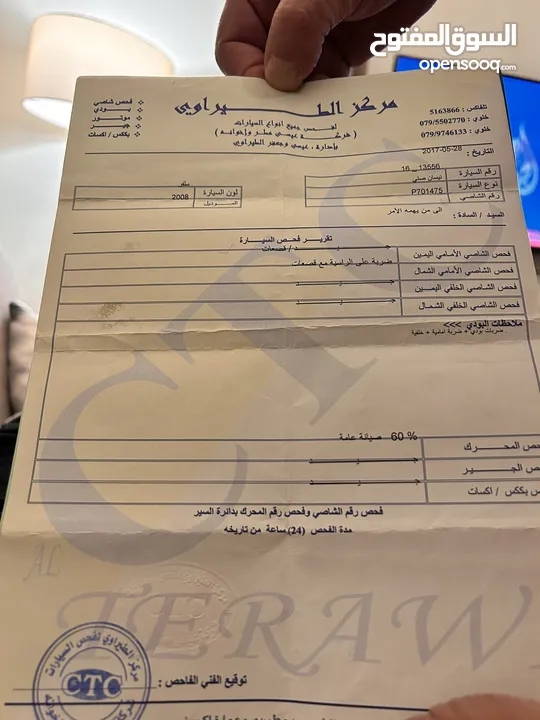 السوق المفتوح
opensooq.com
مركز الطيراوي
لفحص جميع انواع السيارات
( شركة عيسى مطر وإخوانه )
بإدارة : عيسى وجعفر الطيراوي
فحص شاصي
بودي
موتور
جير
بكس / اكسات
تلفاكس : 5163866
خلوي : 079/5502770
خلوي : 079/9746133
التاريخ : 2017-05-28
رقم السيارة 16 _ 13556
نوع السيارة نيسان صني
رقم الشاصي P701475
لون السيارة سلفر
الموديل 2008
السيد / السادة : الى من يهمه الأمر
تقرير فحص السيارة
فحص الشاصي الأمامي اليمين جيد / قصعات
فحص الشاصي الأمامي الشمال ضربة على الراسية مع قصعات
فحص الشاصي الخلفي اليمين جيد
فحص الشاصي الخلفي الشمال جيد
ملاحظات البودي >>>
ضربات بودي + ضربة امامية + خلفية
فحص المحرك 60 % صيانة عامة
فحص الجير جيد
بكس / اكسات جيد
فحص رقم الشاصي وفحص رقم المحرك بدائرة السير
مدة الفحص (24) ساعة من تاريخه
CTC
AL
TERAW
توقيع الفني الفاحص :
مركز الطيراوي لفحص السيارات
CTC